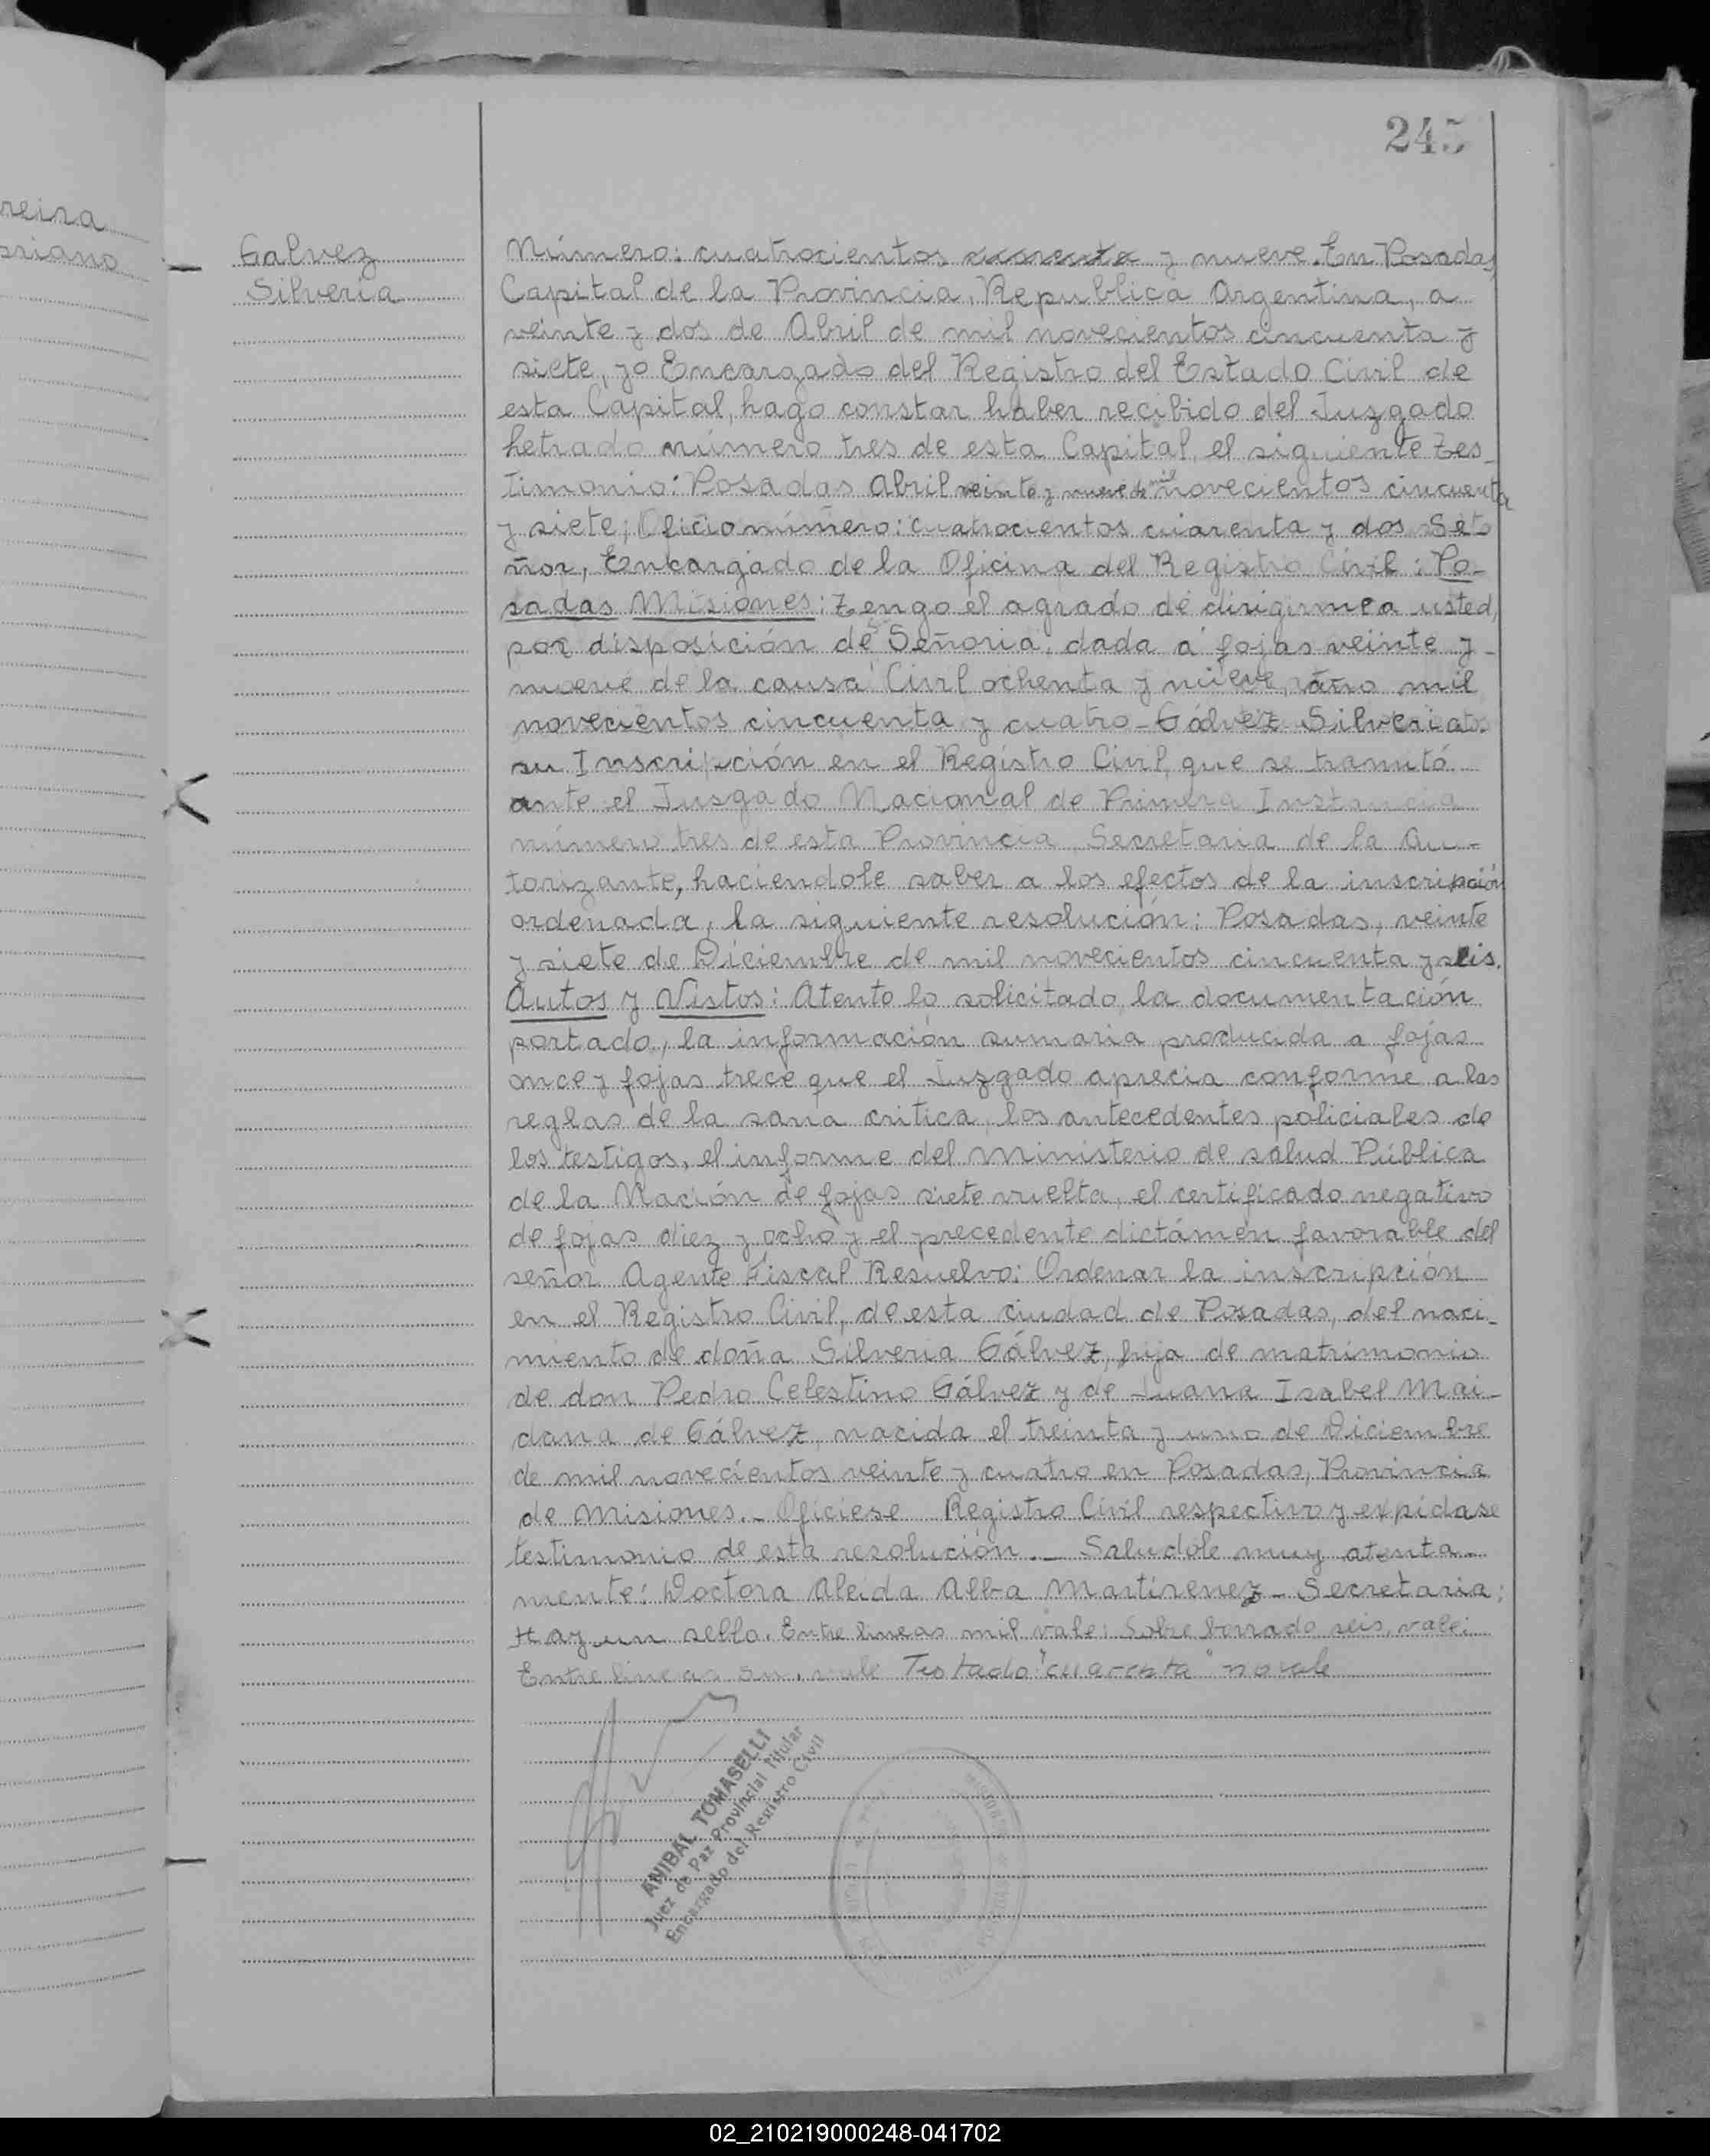 245
reina
priano
Galvez
Silveria
Número: cuatrocientos cuarenta y nueve. En Posadas,
Capital de la Provincia, Republica Argentina, a
veinte y dos de Abril de mil novecientos cincuenta y
siete, yo Encargado del Registro del Estado Civil de
esta Capital, hago constar haber recibido del Juzgado
Letrado número tres de esta Capital, el siguiente tes-
timonio: Posadas Abril veinte y nueve de mil novecientos cincuenta
y siete; Oficio número: cuatrocientos cuarenta y dos Se
ñor, Encargado de la Oficina del Registro Civil: Po-
sadas Misiones: Tengo el agrado de dirigirme a usted,
por disposición de S.. Señoria, dada a fojas veinte y
nueve de la causa Civil ochenta y nueve, año mil
novecientos cincuenta y cuatro - Gálvez Silveria
su Inscripción en el Registro Civil, que se tramitó
ante el Jusgado Nacional de Primera Instancia
número tres de esta Provincia, Secretaria de la Au-
torizante, haciendole saber a los efectos de la inscripción
ordenada, la siguiente resolución: Posadas, veinte
y siete de Diciembre de mil novecientos cincuenta y seis.
Autos y Vistos: Atento lo solicitado, la documentación
portado, la información sumaria producida a fojas
once y fojas trece que el Juzgado aprecia conforme a las
reglas de la sana critica, los antecedentes policiales de
los testigos, el informe del Ministerio de salud Pública
de la Nación de fojas siete vuelta, el certificado negativo
de fojas diez y ocho y el precedente dictámen favorable del
señor Agente Fiscal Resuelvo: Ordenar la inscripción
en el Registro Civil, de esta ciudad de Posadas, del naci-
miento de doña Silveria Gálvez, hija de matrimonio
de don Pedro Celestino Gálvez y de Juana Isabel Mai-
dana de Gálvez, nacida el treinta y uno de Diciembre
de mil novecientos veinte y cuatro en Posadas, Provincia
de Misiones.- Ofíciese Registro Civil respectivo y expídase
testimonio de esta resolución.- Saludole muy atenta-
mente: Doctora Aleida Alba Martirenez - Secretaria:
Hay un sello. Entre lineas mil vale: Sobre borrado seis, vale:
Entre lineas su, vale Testado "cuarenta" no vale
ANIBAL TOMASELLI
Juez de Paz Provincial Titular
Encargado del Registro Civil
02_210219000248-041702